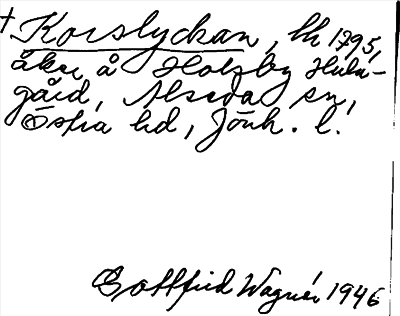 † Korslyckan, hk 1795,
åker å Holsby Hula-
gård, Alseda sn,
Östra hd, Jönk. l.
Gottfrid Wagnér 1946